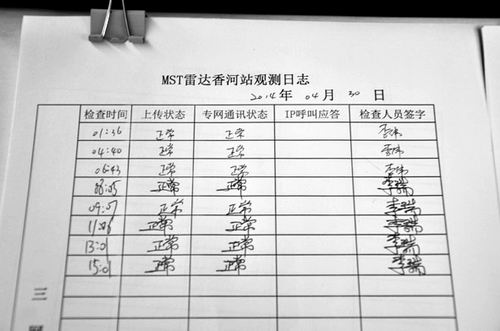 MST雷达香河站观测日志
2014年 04月 30日
检查时间 上传状态 专网通讯状态 IP呼叫应答 检查人员签字
01:36 正常 正常 李伟
04:40 正常 正常 李伟
06:43 正常 正常 李伟
08:05 正常 正常 李瑞
09:57 正常 正常 李瑞
正常 正常 李瑞
13:01 正常 正常 李瑞
15:01 正常 正常 李瑞
三